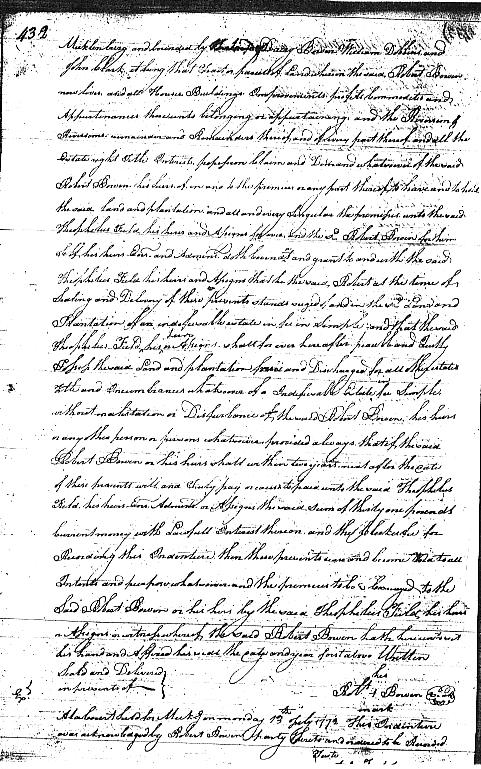 432
Mecklenburg and bounded by Bowen William Dobbins and
John Clark being that tract or parcel of Land whereon the said Robert Bowen
now lives and all House Buildings Improvements profits Commodities and
Appurtenances thereunto belonging or appertaining and the Revision &
Revisions remainder and Remainders thereof and of every part thereof and all the
Estate right Title Interest, possession Claim and Demand whatsoever of the said
Robert Bowen his heirs of in and to the premises or any part thereof to have and to hold
the said Land and plantation and all and every singular the premises unto the said
Theophelus Field, his heirs and Assigns for ever, and the Sd. Robert Bowen for him
Self, his heirs Exrs. and Admrs. doth Covenant and grant to and with the said
Theophelus Field his heirs and Assigns that he the said, Robert at the time of
Sealing and Delivery of these presents stands seized, and in the sd. Land and
Plantation of an indefeasable estate in fee in Simple and that the said
Theophelus Field, his heirs or Assigns shall for ever hereafter peacably and Quietly
the said Land and plantation freed and Discharged for all other estates
Title and Incumbrances whatsoever of a Indefeasable Estate in fee Simple
without molestation or Disturbance of the said Robert Bowen, his heirs
or any other person or persons whatsoever provided always that if the said
Robert Bowen or his heirs shall within two years next after the date
of these presents will and truly pay or cause to be paid unto the said Theophelus
Field, his heirs Exrs. Admrs. or Assigns the said Sum of thirty one pounds
Current money with Lawfull Interest thereon and the for
Recording this Indenture then these presents cease and become Void to all
Intents and purposes whatsoever and the premises to be to the
Said Robert Bowen or his heirs by the said Theophelus Field, his heirs
or Assigns in witness whereof, the said Robert Bowen hath hereunto set
his hand and Affixed his seal the day and year first above Written
Seald and Delivered his
in presents of Robt. Bowen
mark
At a Court held for Meck on monday 13th July 177 This Indenture
was acknowledged by Robert Bowen party thereto and ordered to be Recorded
Teste